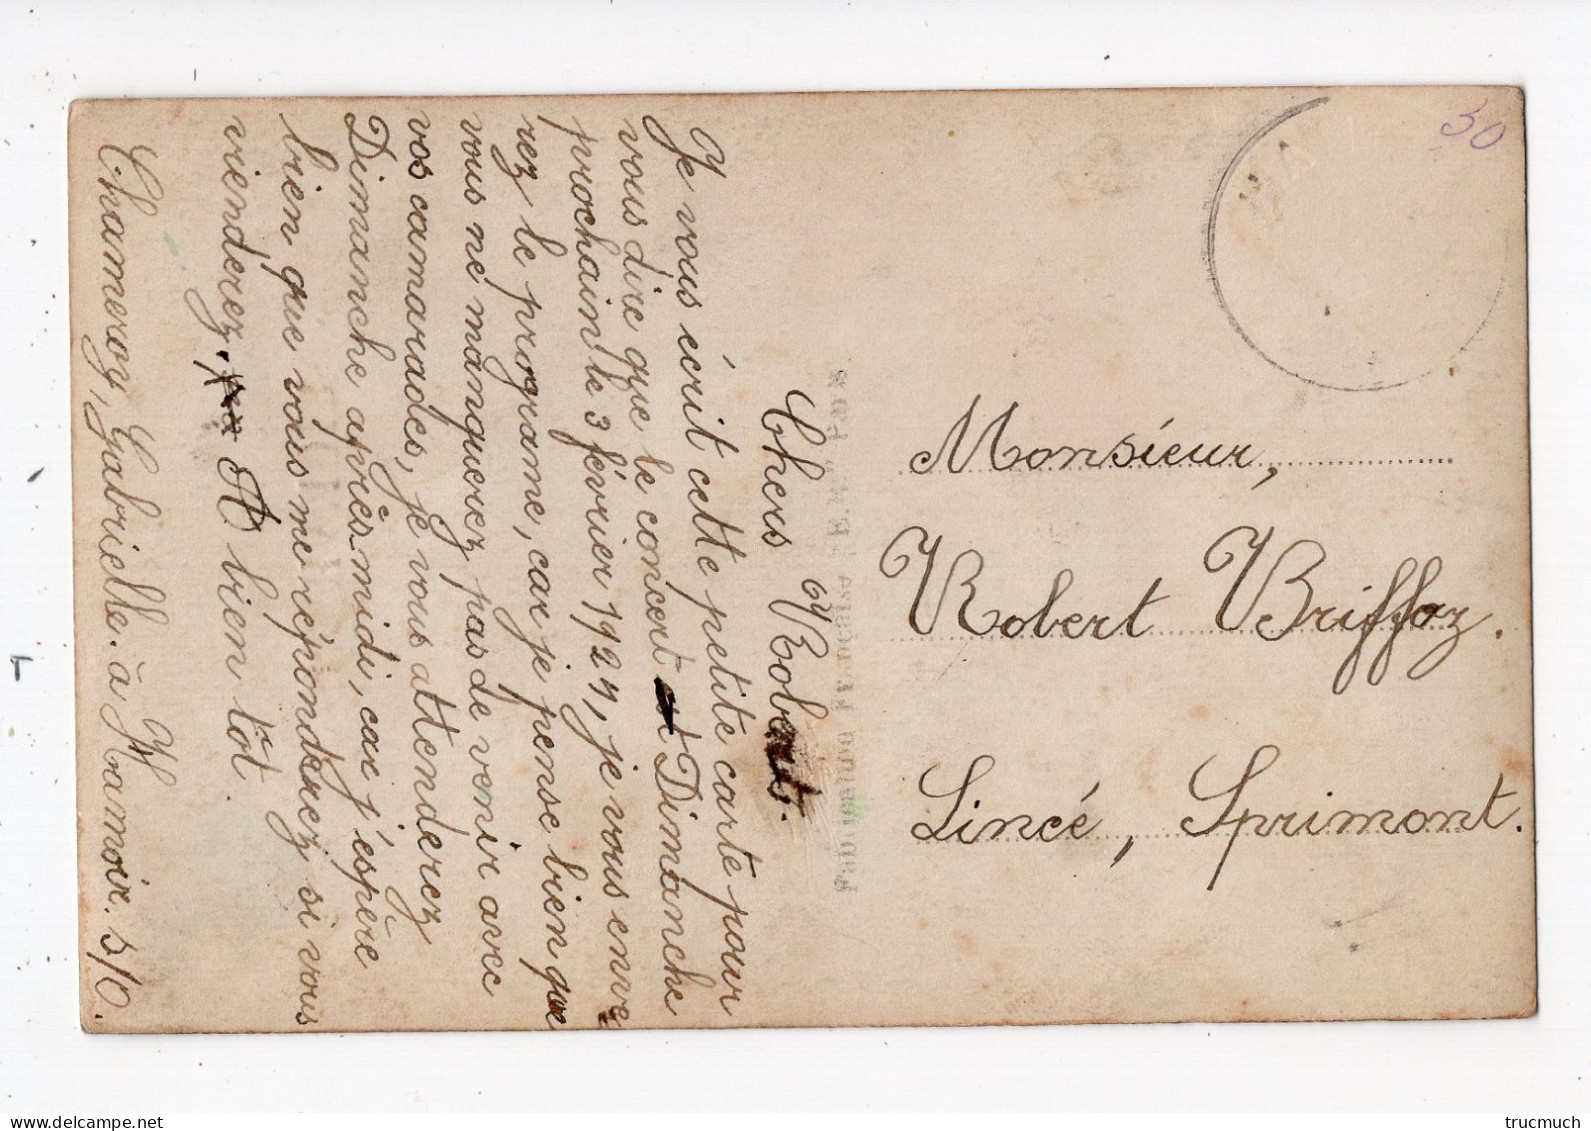 Chers Robert.
Je vous écrit cette petite carte pour
vous dire que le concert Dimanche
prochain le 3 février 1924, je vous enve
rez le programe, car je pense bien que
vous ne manquerez pas de venir avec
vos camarades, je vous attenderez
Dimanche après-midi, car j'espère
bien que vous me réponderez si vous
vienderez. A bien tôt.
Chameroy, Gabrielle. à Hamoir. S/O.
Monsieur,
Robert Briffoz.
Lincé, Sprimont.
50
trucmuch